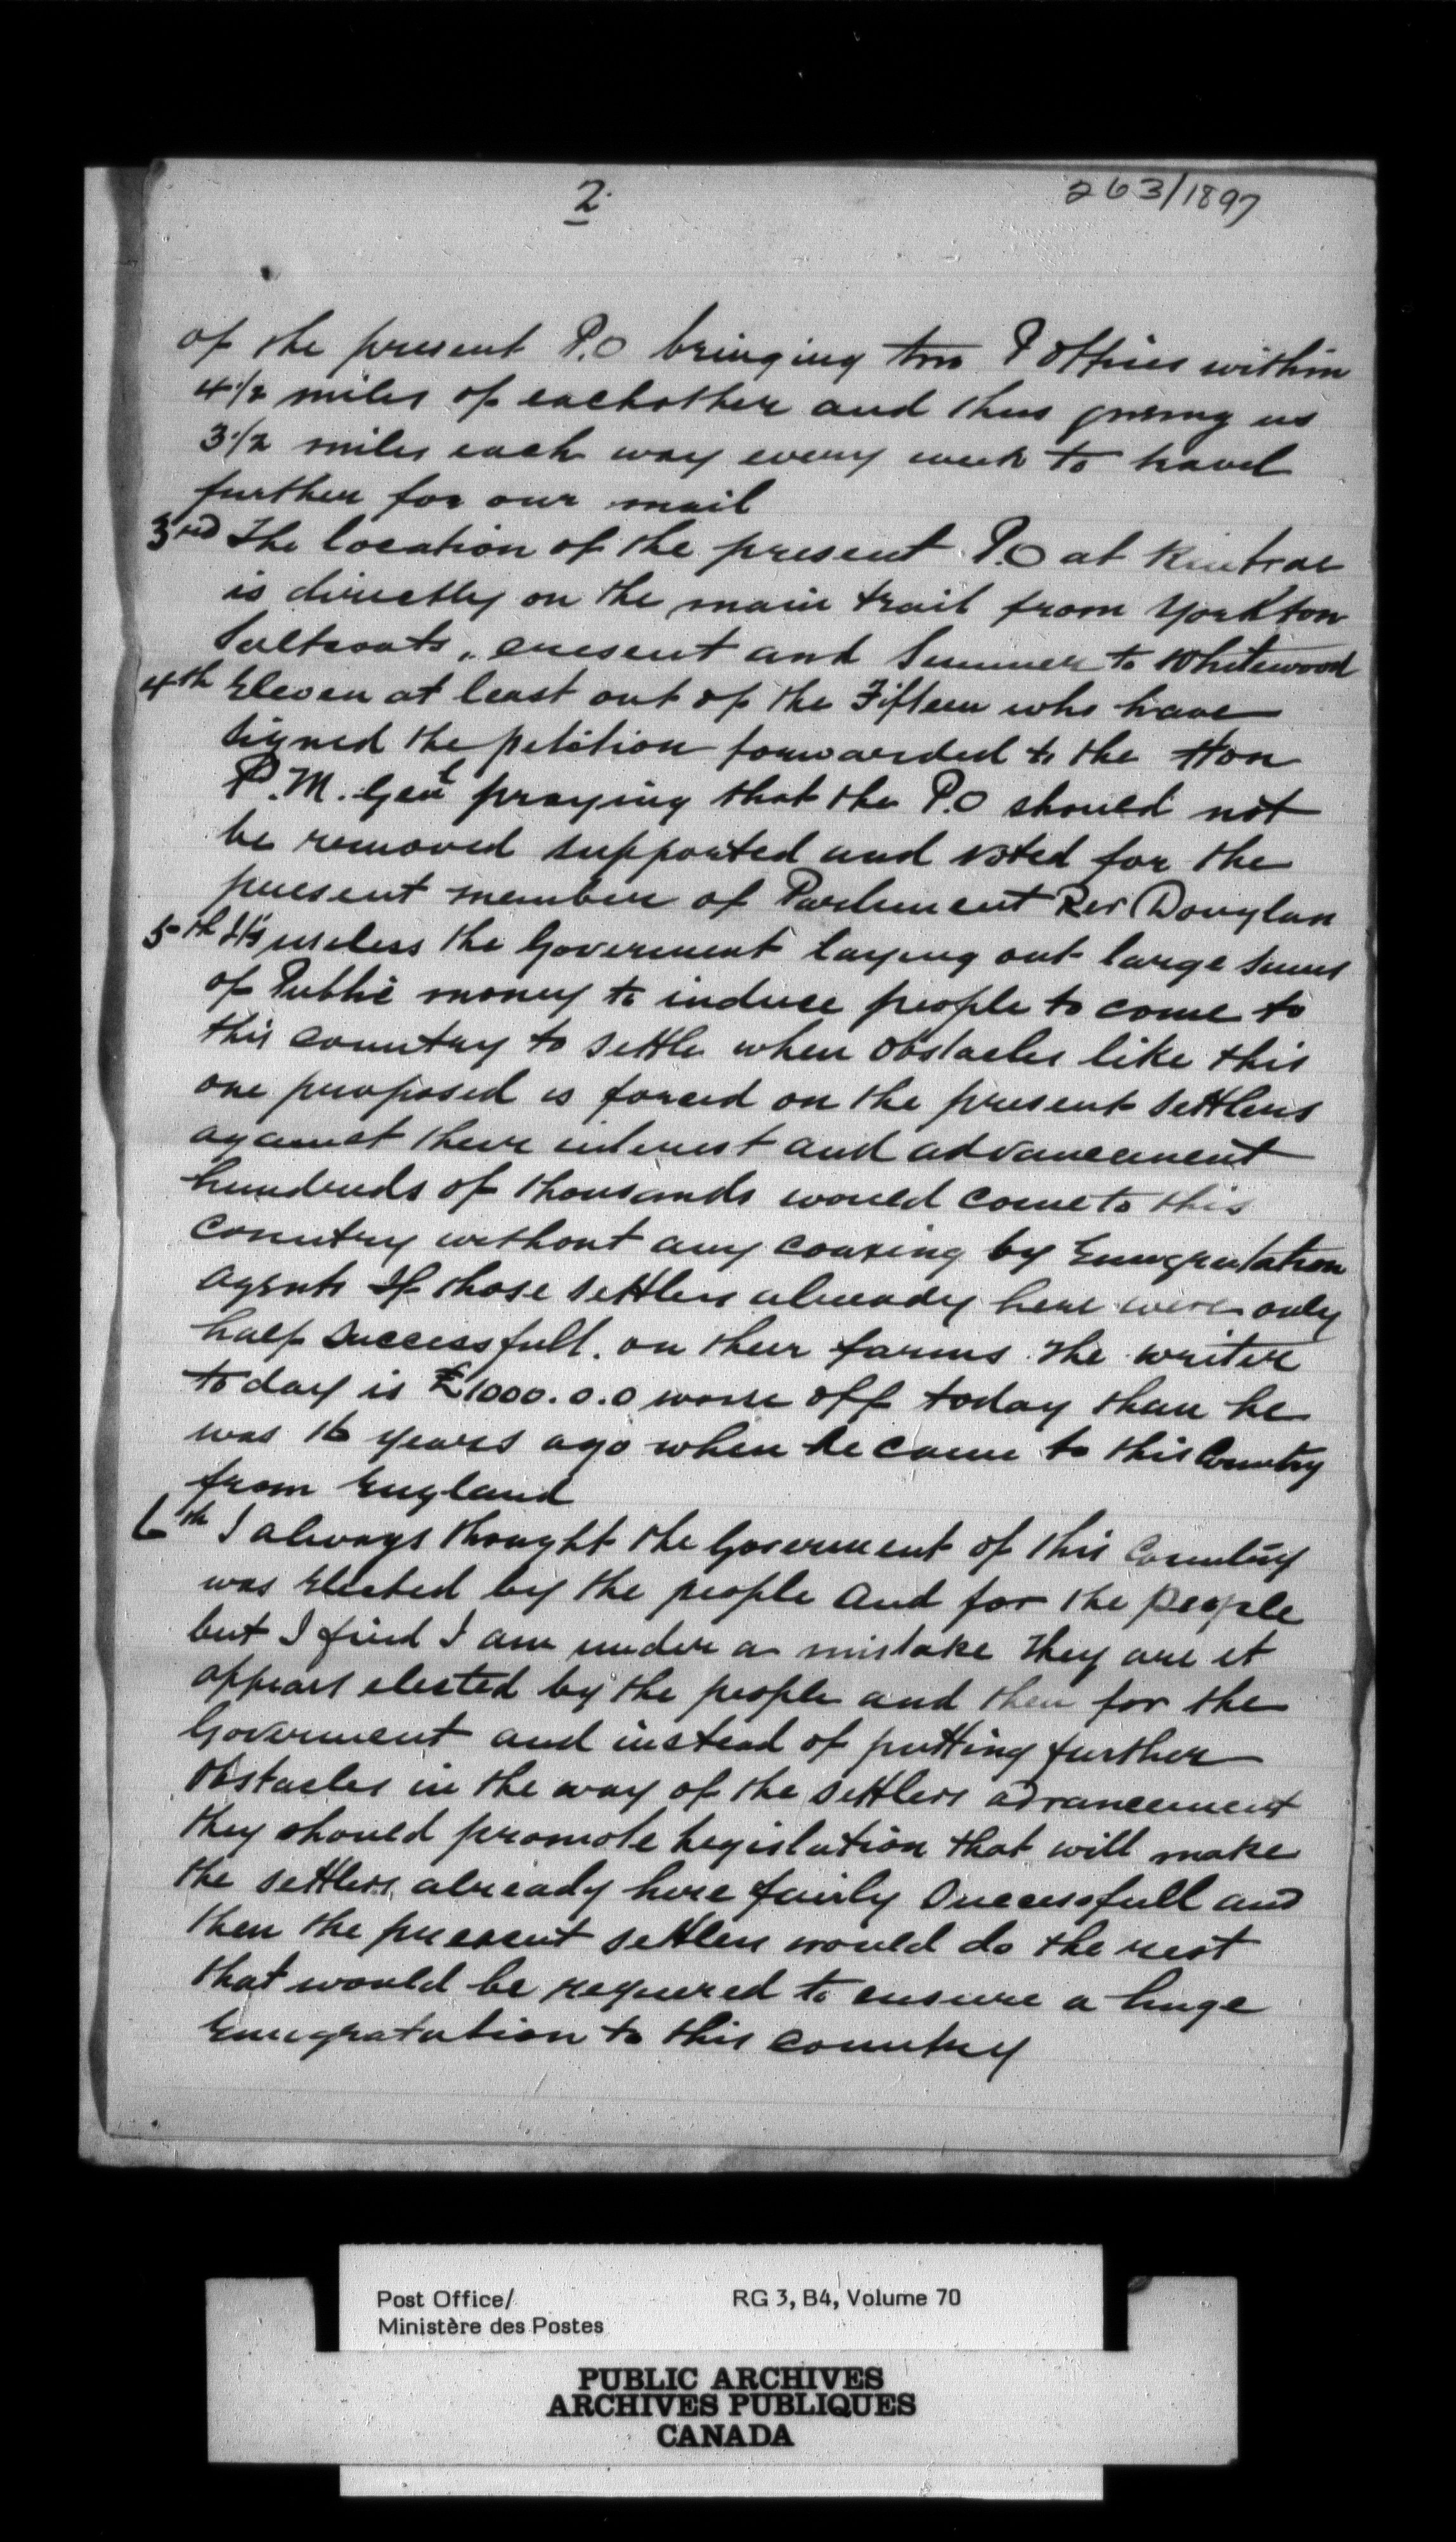 2.
263/1897
of the present P.O bringing two P Offices within
4 1/2 miles of eachother and thus giving us
3 1/2 miles each way every week to travel
further for our mail
3rd The location of the present P.O at Kinbrae
is directly on the main trail from Yorkton
Saltcoats, cresent and Sumner to Whitewood
4th Eleven at least out of the Fifteen who have
signed the petition forwarded to the Hon
P.M. Genl praying that the P.O should not
be removed supported and voted for the
present member of Parliment Rev Douglan
5th It's useless the Goverment laying out large sums
of Public money to induce people to come to
this country to settle when obstacles like this
one proposed is forced on the present settlers
against their interest and advancement
hundreds of thousands would come to this
country without any coaxing by Emegratation
agents If those settlers already here were only
half successfull. on their farms. The writer
to day is £1000.0.0 worse off today than he
was 16 years ago when he came to this Country
from England
6th I always thought the Goverment of this Country
was Elected by the people and for the people
but I find I am under a mistake They are it
appears elected by the people and then for the
Goverment and instead of putting further
obstacles in the way of the settlers advancement
they should promote legislation that will make
the settlers already here fairly Successfull and
then the present settlers would do the rest
that would be required to ensure a huge
Emegratation to this country
Post Office/
Ministère des Postes
RG 3, B4, Volume 70
PUBLIC ARCHIVES
ARCHIVES PUBLIQUES
CANADA